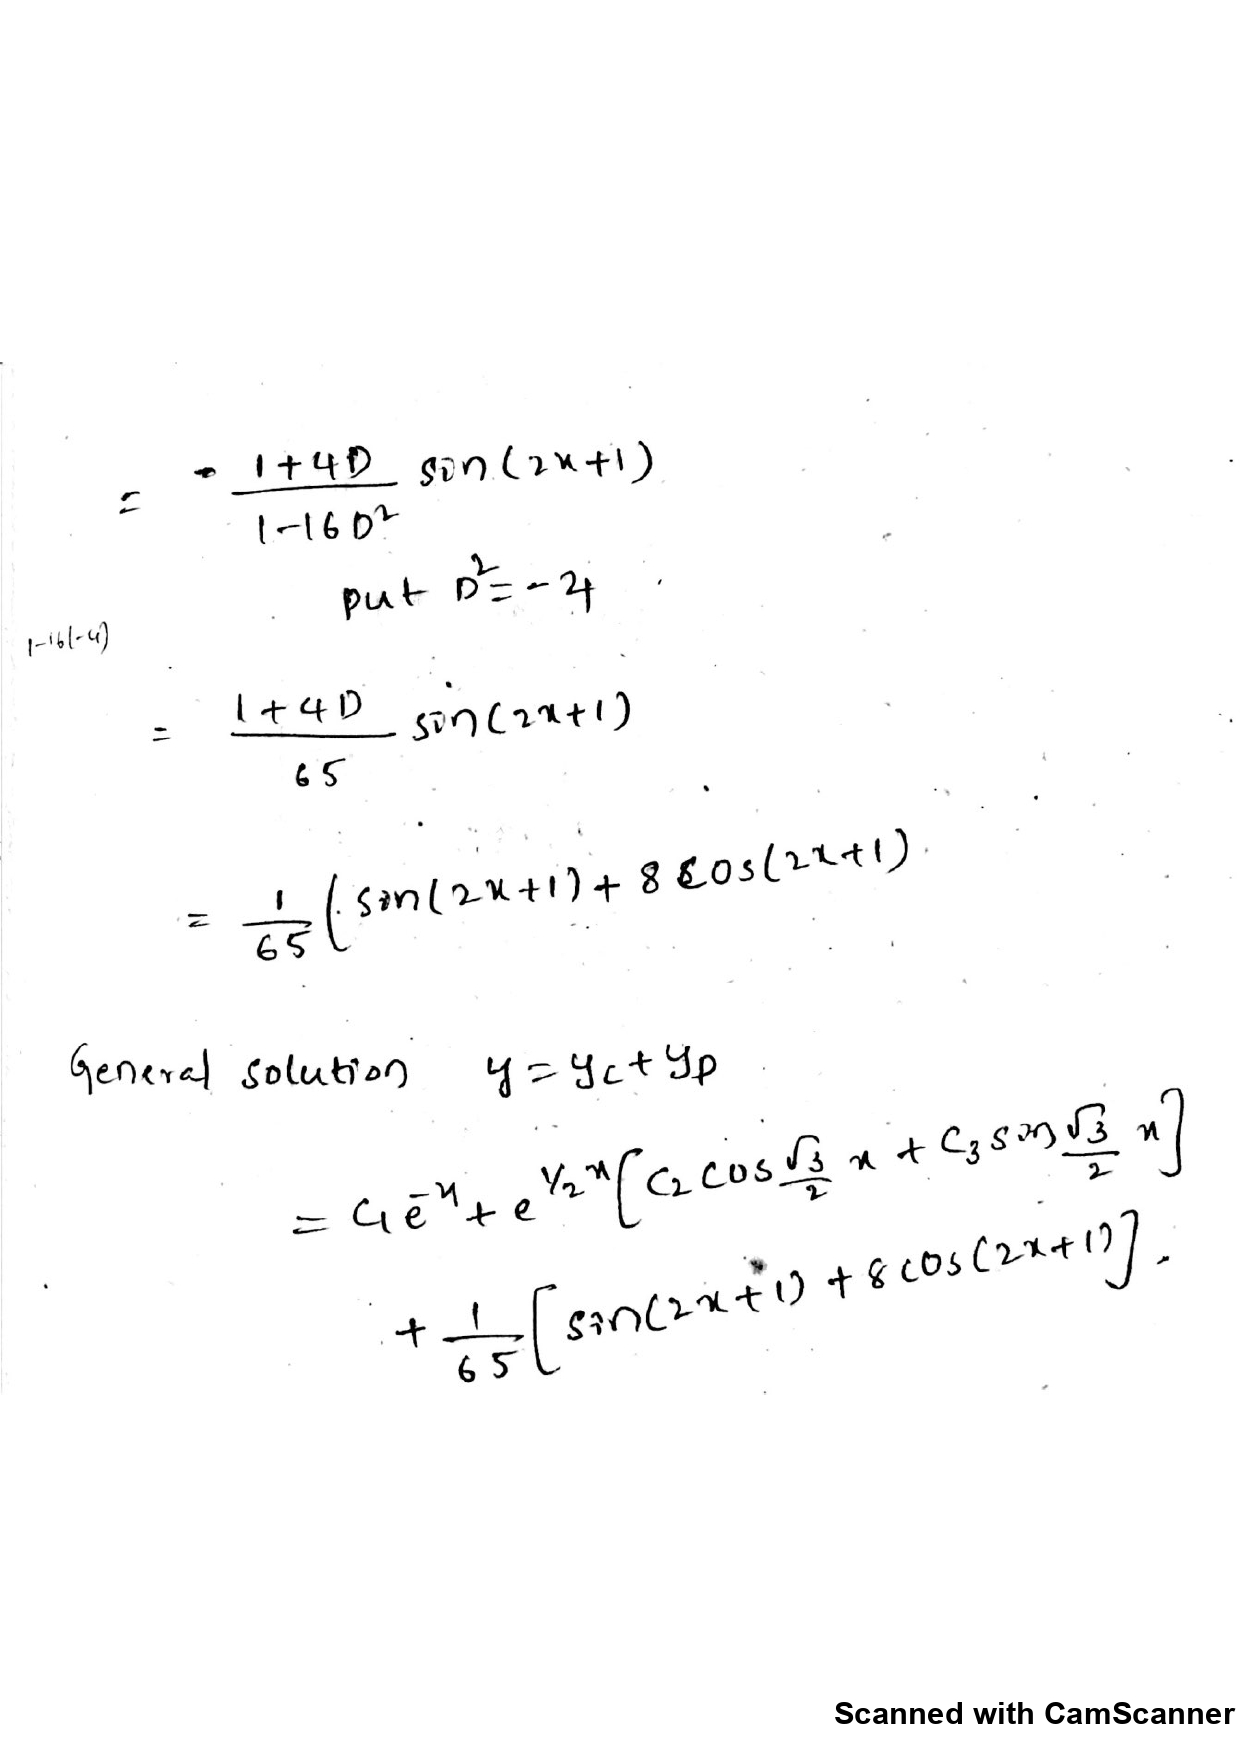 = - 1+4D / 1-16D² sin(2x+1)
put D² = -4
1-16(-4)
= 1+4D / 65 sin(2x+1)
= 1/65 ( sin(2x+1) + 8 cos(2x+1)
General solution y = yc + yp
= C1 e^-x + e^1/2 x [ C2 cos √3/2 x + C3 sin √3/2 x ]
+ 1/65 [ sin(2x+1) + 8 cos(2x+1) ] .
Scanned with CamScanner